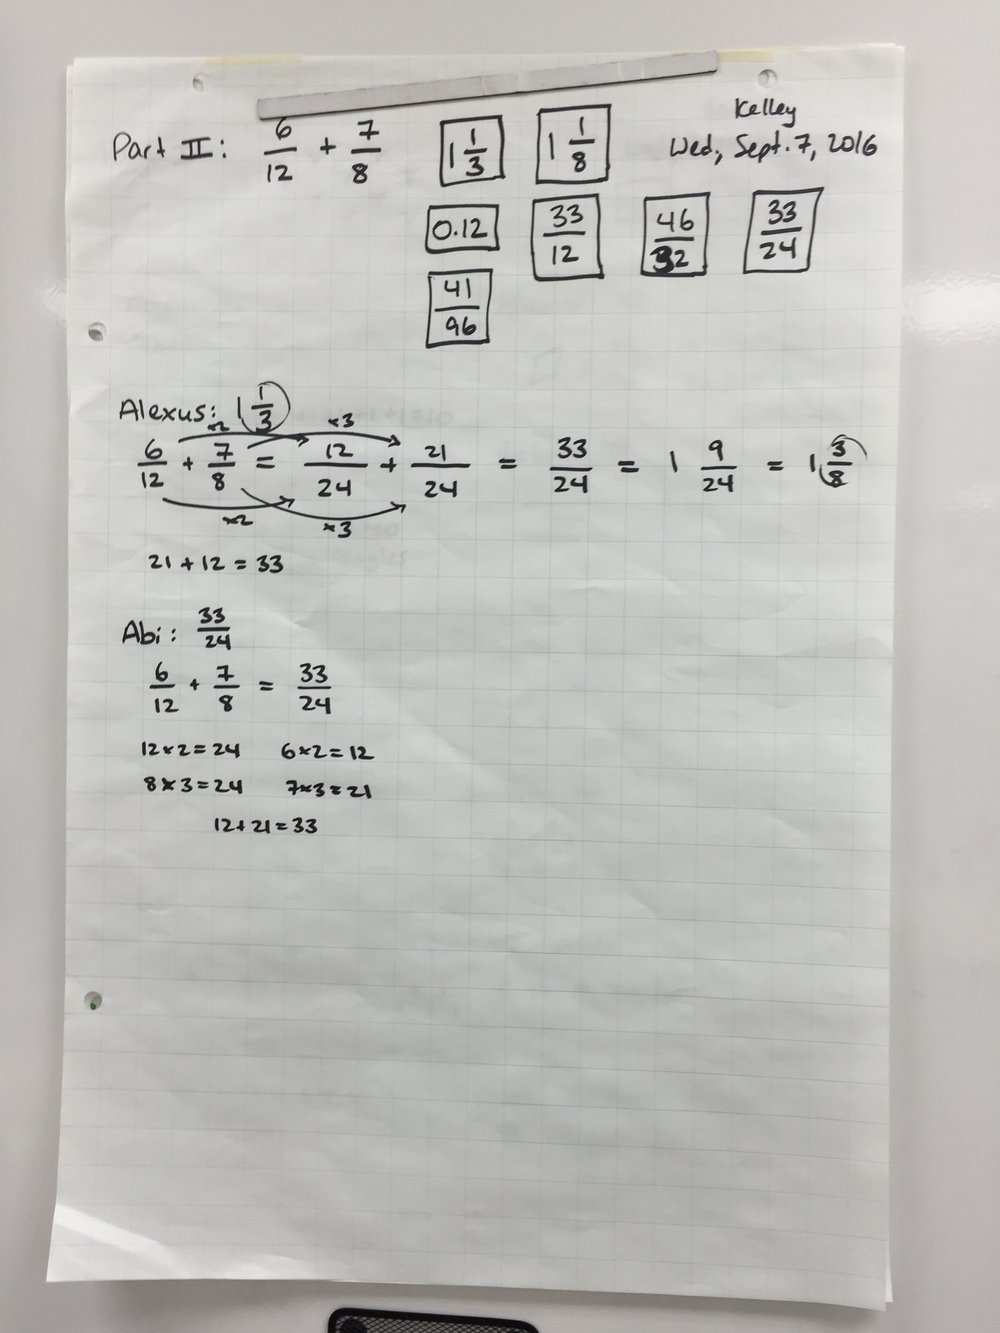 Kelley
Part II: 6/12 + 7/8 [1 1/3] [1 1/8] Wed, Sept. 7, 2016
[0.12] [33/12] [46/32] [33/24]
[41/96]
Alexus: 1 1/3
×2 ×3
6/12 + 7/8 = 12/24 + 21/24 = 33/24 = 1 9/24 = 1 3/8
×2 ×3
21 + 12 = 33
Abi: 33/24
6/12 + 7/8 = 33/24
12×2=24 6×2=12
8×3=24 7×3=21
12+21=33